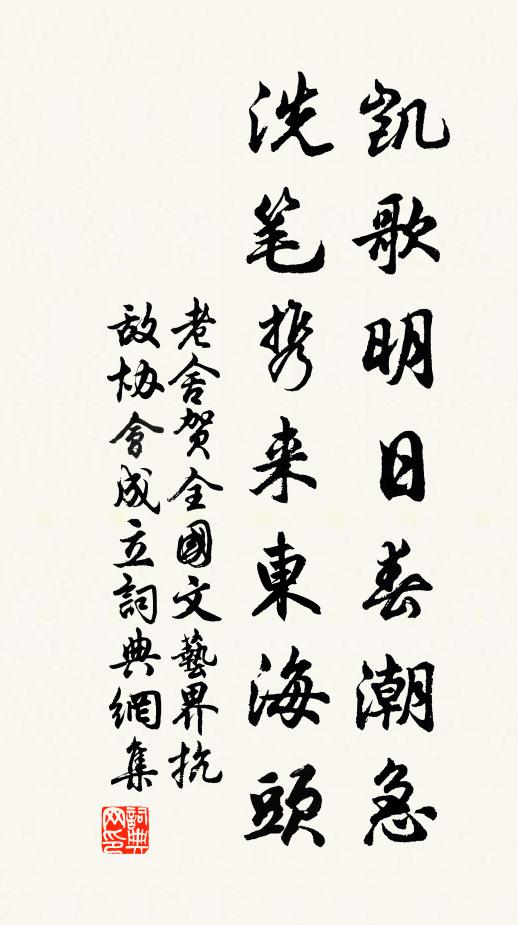 凱歌明日春潮急
洗笔携来東海頭
老舍贺全國文藝界抗
敌协會成立詞典網集
詞典
网印